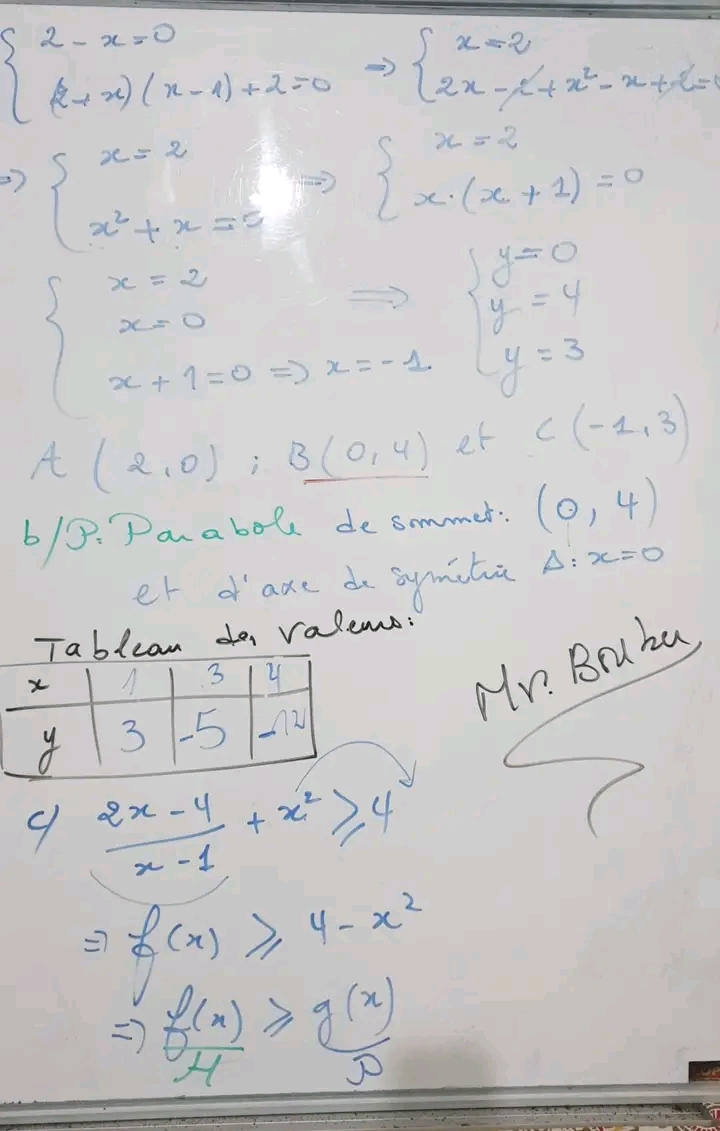 { 2 - x = 0
(2 + x)(x - 1) + 2 = 0
=> { x = 2
2x - 2 + x² - x + 2 = 0
=> { x = 2
x² + x = 0
=> { x = 2
x·(x + 1) = 0
{ x = 2
x = 0
x + 1 = 0 => x = -1.
=> { y = 0
y = 4
y = 3
A (2,0) ; B(0,4) et C(-1,3)
b/ P: Parabole de sommet: (0, 4)
et d'axe de symétrie Δ: x = 0
Tableau des valeurs:
x | 1 | 3 | 4
y | 3 | -5 | -12
Mr.
c) (2x - 4)/(x - 1) + x² ⩾ 4
=> f(x) ⩾ 4 - x²
=> f(x) ⩾ g(x)
H P